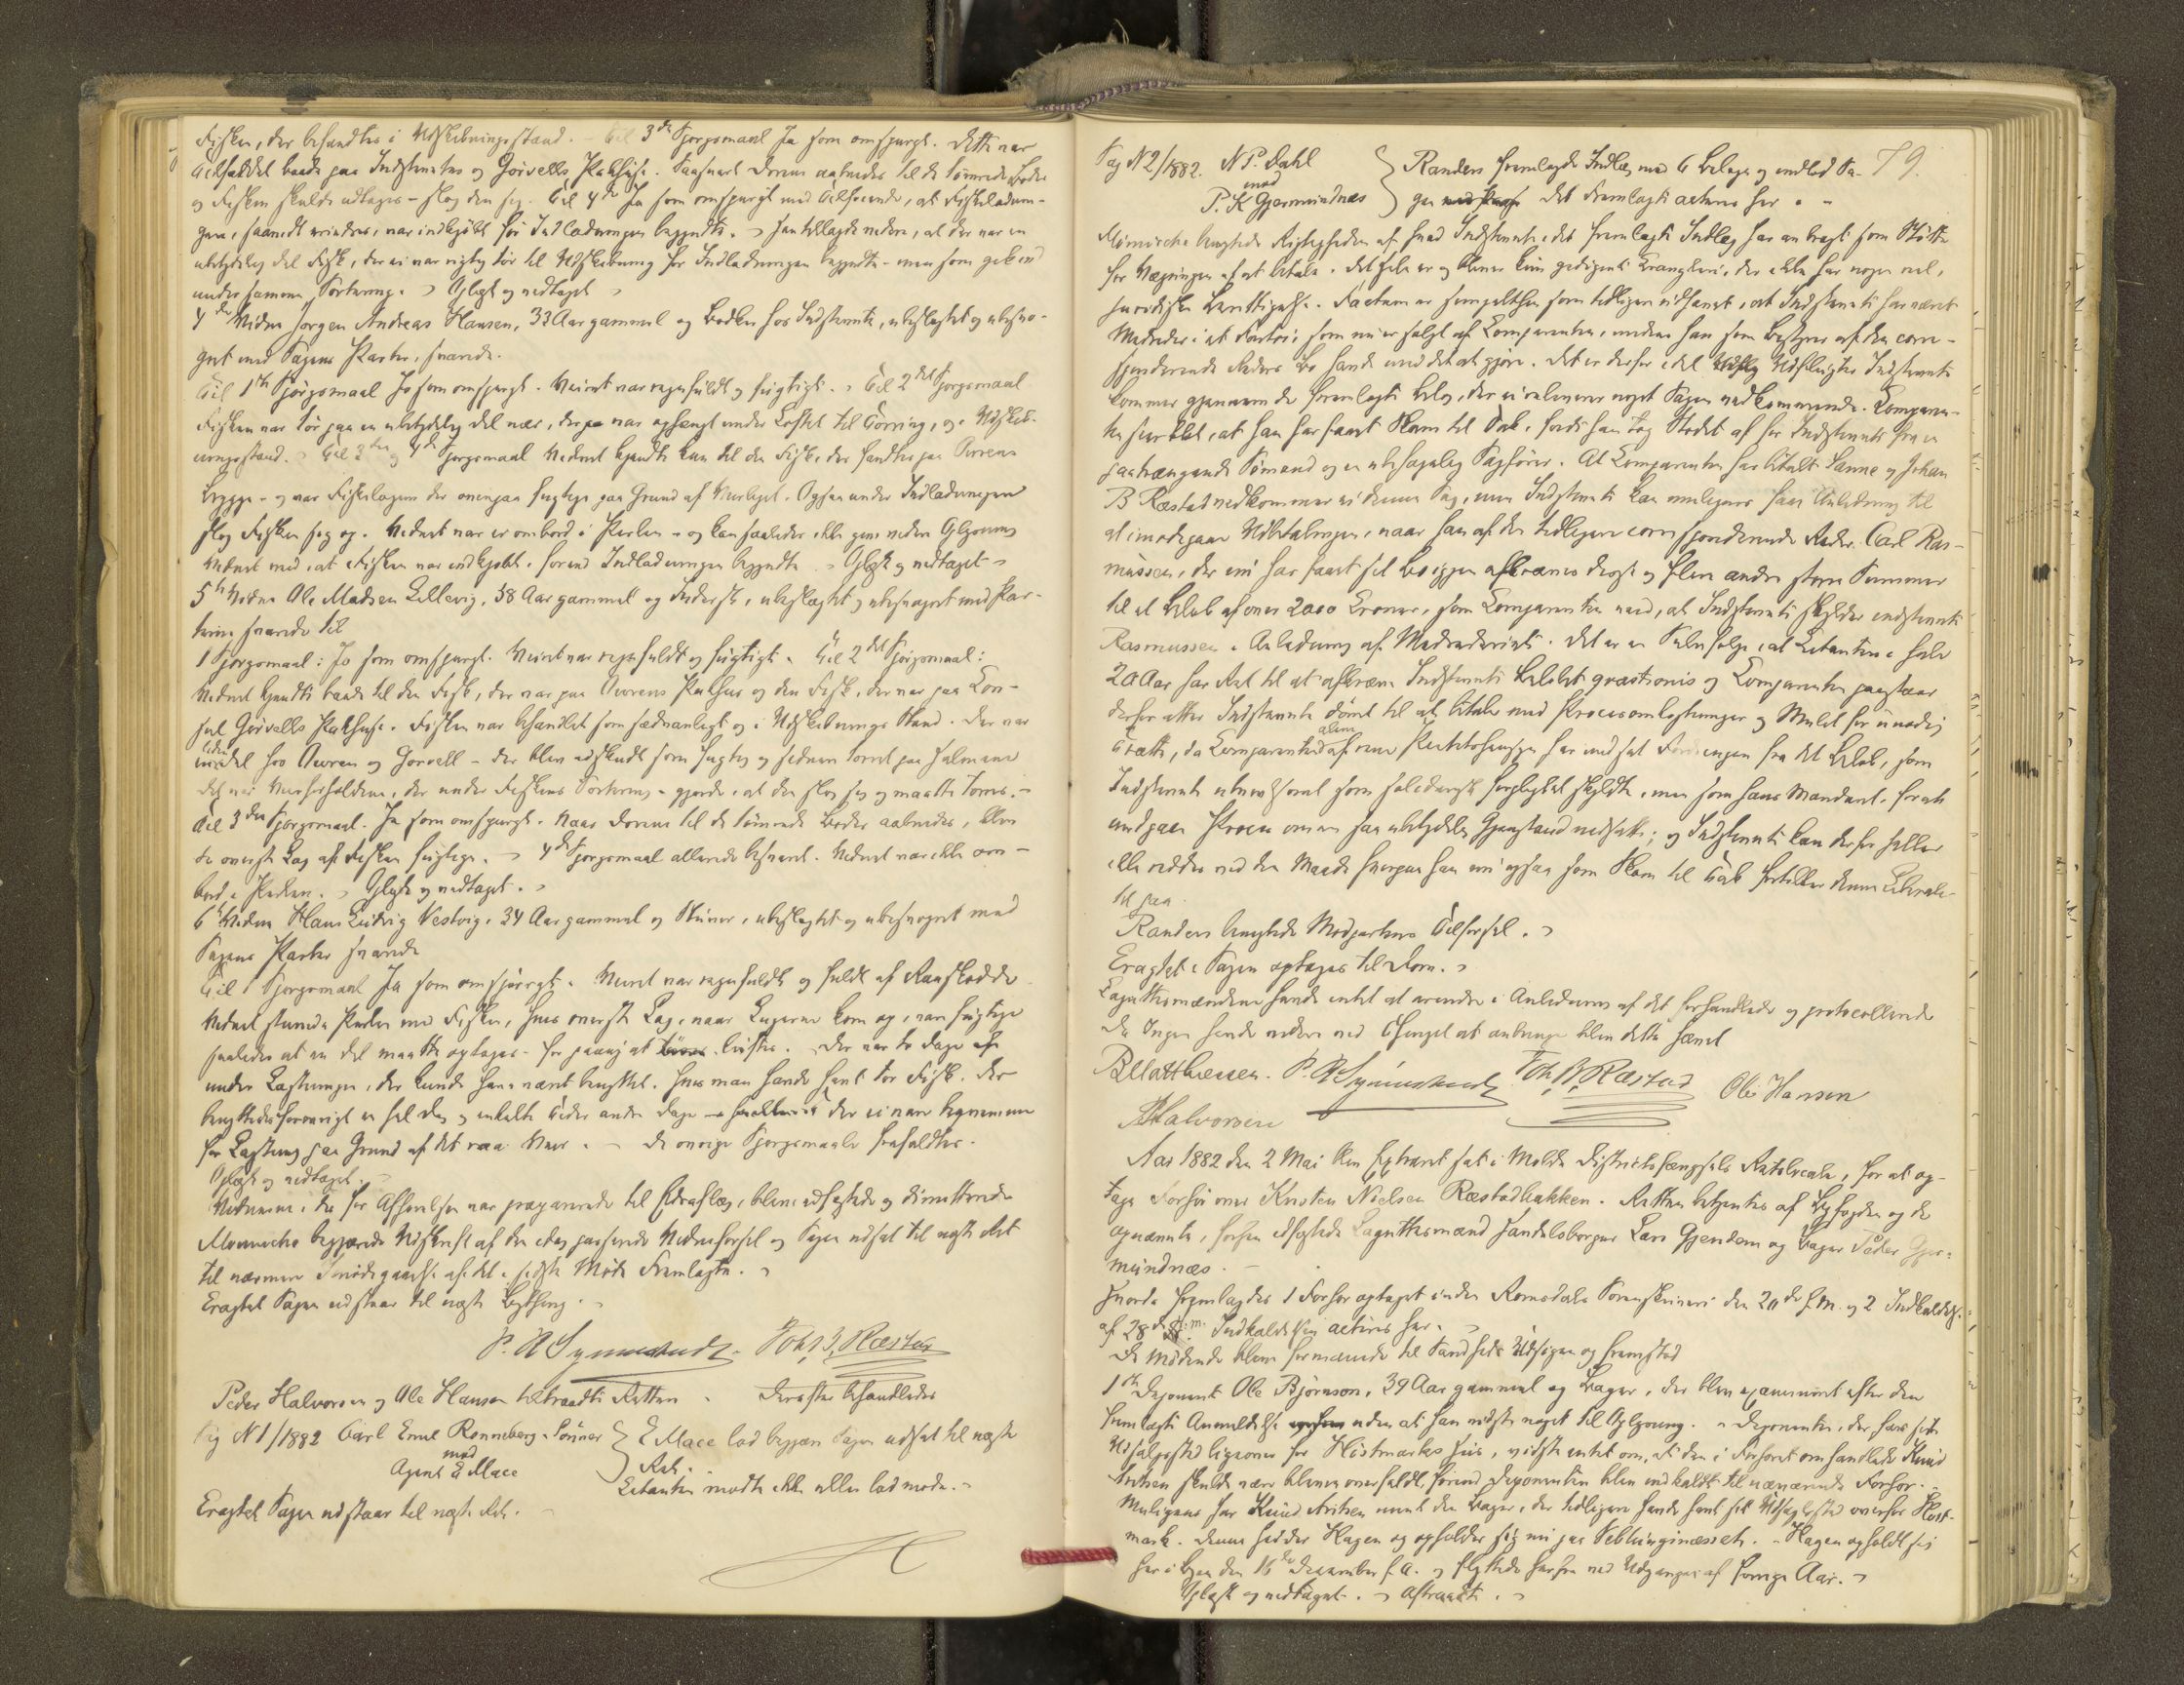 Fisken, der befandtes i Udskibningsstand. – Til 3die Spørgsmaal Ja som omspurgt. Dette var
Tilfældet baade paa Indstevntes og Gørvells Pakhuse. Saasnart Dørene aabnedes til de tømrede Boder
og Fisken skulde udtages – slog den sig. Til 4de Ja som omspurgt med Tilføiende, at Fiskeladnin-
gen, saavidt erindres, var indkjøbt før Indladningen begyndte. – Han tillagde videre, at der var en
ubetydelig Del Fisk, der ei var rigtig tør til Udskibning før Indladningen begyndte – men som gik ind
under samme Sortering. – Oplæst og vedtaget –
4de Vidne Jørgen Andreas Hansen, 33 Aar gammel og Bødker hos Indstevnte, ubeslægtet og ubesvo-
gret med Sagens Parter, svarede.
Til 1ste Spørgsmaal Ja som omspurgt. Veiret var regnfuldt og fugtigt. – Til 2det Spørgsmaal
Fisken var tør paa en ubetydelig Del nær, der var ophængt under Loftet til Tørring, og i Udskib-
ningsstand. – Til 3die og 4de Spørgsmaal Vidnet kjendte kun til den Fisk, der fandtes paa Owrens
Brygge – og var Fiskelagene der ovenpaa fugtige paa Grund af Veirliget. Ogsaa under Indladningen
slog Fisken sig og. Vidnet var ei ombord i Perlen – og kan saaledes ikke give videre Oplysning
Vidnet ved, at Fisken var indkjøbt, førend Indladningen begyndte. – Oplæst og vedtaget –
5te Vidne Ole Madsen Lillevig, 58 Aar gammel og Inderst, ubeslægtet og ubesvogret med Par-
terne svarede til
1 Spørgsmaal: Ja som omspurgt. Veiret var regnfuldt og fugtigt. Til 2det Spørgsmaal:
Vidnet kjendte baade til den Fisk, der var paa Owrens Pakhus og den Fisk, der var paa Kon-
sul Gørvells Pakhuse. Fisken var behandlet som sædvanligt og i Udskibnings Stand. Der var
en liden Del hos Owren og Gørvell – der blev udskudt som fugtig og sidenen tørret paa Hjelmene
Det var Veirforholdene, der under Fiskens Sortering – gjorde, at den slog sig og maatte tørres. –
Til 3die Spørgsmaal. Ja som omspurgt. Naar Dørene til de tømrede Boder aabnedes, blev
de øverste Lag af Fisken fugtige. – 4de Spørgsmaal allerede besvaret. Vidnet var ikke om-
bord i Perlen. – Oplæst og vedtaget. –
6te Vidne Hans Ludvig Vestvig, 34 Aar gammel og Stuver, ubeslægtet og ubesvogret med
Sagens Parter svarede
Til 1 Spørgsmaal Ja som omspurgt. Veiret var regnfuldt og fuldt af Raaskodde
Vidnet stuvede Perlen med Fisken, hvis øverste Lag, naar Lugerne kom op, var fugtige
saaledes at en Del maatte optages – for paany at luftes. Der var to Dage
under Lastningen, der kunde have været benyttet, hvis man havde havt tør Fisk. Der
benyttedes forøvrigt en hel Dag og enkelte Tider andre Dage – der ei var begunnen
for Lastning paa Grund af det raa Veir. – De øvrige Spørgsmaale frafaldtes.
Oplæst og vedtaget. –
Vidnerne, der før Afhørelsen var præparerede til Edsaflæg, bleve edfæstede og dimitterede
Mönniche begjærede Udskrift af den idag passerede Vidneførsel og Sagen udsat til næste Ret
til nærmere Imødegaaelse af det i sidste Møde Fremlagte. –
Eragtet Sagen udstaar til næste Bything. –
P. R. Gjermundnæs. Joh. B. Ræstad
Peder Halvorsen og Ole Hansen tiltraadte Retten – Derefter behandledes
Sag N 1/1882 Carl Emil Rønneberg & Sønner
mod
Agent E Mace
E Mace lod begjære Sagen udsat til næste
Ret. –
Citanten mødte ikke eller lod møde. –
Eragtet Sagen udstaar til næste Ret. –
79.
Sag N 2/1882. N P. Dahl
mod
P. K Gjermundnæs
Randers fremlagde Indlæg med 6 Bilage og indlod Sa-
gen Det Fremlagte acteres her. –
Mönniche benegtede Rigtigheden af hvad Indstevnte i det fremlagte Indlæg har anbragt som Støtte
for Vægringen af at betale. Det Hele er og bliver kun gedigent Vrangleri, der ikke har nogen reel,
juridisk Berettigelse. Factum er simpelthen som tidligere vidsandt, at Indstevnte har været
Medreder i et Fartøi, som nu er solgt af Comparenten, medens han som Bestyrer af den corre-
sponderende Reders Bo havde med det at gjøre. Det er derfor idel Udflugter Indstevnte
kommer gjennem de fremlagte Bilag, der ei vedkommer noget Sagen vedkommende. Comparen-
ten har blot, at han har faaet Skam til Tak, fordi han tog Stødet af for Indstevnte fra en
paatrængende Sømand og en ubehagelig Sagfører. At Comparenten har betalt Sanne og Johan
B Ræstad vedkommer ei denne Sag, men Indstevnte kan muligens faae Anledning til
at imødegaae Udbetalingen, naar han af den tidligere corresponderende Reder Carl Ras-
mussen, der nu har faaet sit Bo igjen afkræves denne og flere andre større Summer
til et Beløb af over 2000 Kroner, som Comparenten veed, at Indstevnte skylder indstevnte
Rasmussen i Anledning af Medrederiet. Det er en Selvfølge, at Citanten i hele
20 Aar har Ret til at afkræve Indstevnte Beløbet qvæstionis og Comparenten paastaar
derfor atter Indstevnte dømt til at betale med Procesomkostninger og Mulct for unødig
Trætte, da Comparenten alene af ren Retsfølelse har nedsat Fordringen fra det Beløb, som
Indstevnte utvivlsomt som solidarisk forpligtet skyldte, men som hans Mandant, for at
undgaa Proces om en saa ubetydelig Gjenstand nedsatte; og Indstevnte kan derfor heller
ikke reddes ved den Maade hvorpaa han nu ogsaa som Skam til Tak fortolker denne Liberali-
tet paa.
Randers benegtede Modpartens Tilførsel. –
Eragtet: Sagen optages til Dom. –
Lagrettesmændene havde intet at erindre i Anledning af det forhandlede og protocollerede
Da Ingen havde videre ved Thinget at anbringe blev dette hævet
B. Matthiessen. P. R. Gjermundnæs Joh. B. Ræstad Ole Hansen
P. Halvorsen
Aar 1882 den 2 Mai blev Extraret sat i Molde Districtsfængsels Retslocale, for at op-
tage Forhør over Kristen Nielsen Ræstadbakken. Retten betjentes af Byfogden og de
opnævnte, forhen edfæstede Lagrettesmænd Handelsborger Lars Gjendem og Bager Peder Gjer-
mundnæs. –
Hvorda fremlagdes 1 Forhør optaget under Romsdals Sorenskriveri den 20de f. M. og 2 Indkaldelse
af 28de f. m. Indkaldelsen acteres her. –
De Mødende bleve formanede til Sandheds Udsigen og fremstod
1ste Deponent Ole Bjørnson, 39 Aar gammel og Bager, der blev examineret efter den
fremlagte Anmeldelse uden at han vidste noget til Oplysning. – Deponenten, der har sit
Udsalgssted ligeover for Høstmarks Hus, vidste intet om, at den i Forhøret omhandlede Knud
Avitsen skulde være bleven overfaldt, førend Deponenten blev indkaldt til nærværende Forhør. –
Muligens har Knud Avitsen ment den Bager, der tidligere havde havt sit Udsalgssted overfor Høst-
mark. Denne hedder Hagen og opholder sig nu paa Veblungsnæsset. – Hagen opholdt sig
her i Byen den 16de December f. A. og flyttede herfra ved Udgangen af forrige Aar. –
Oplæst og vedtaget. – Aftraadte. –